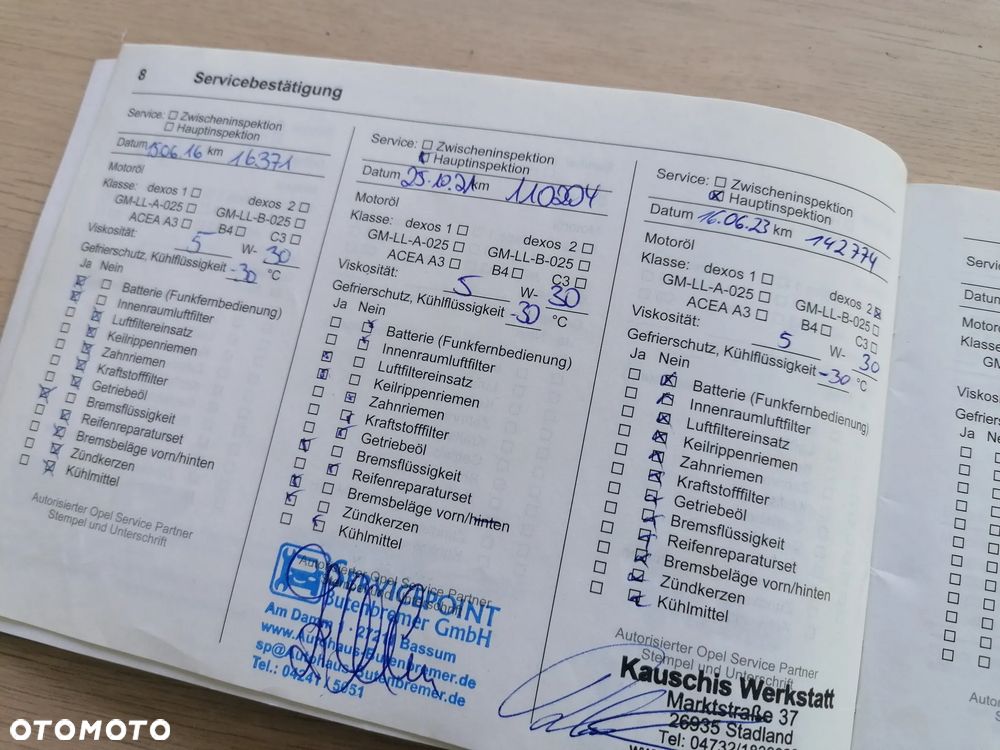 8 Servicebestätigung
Service: Zwischeninspektion
Hauptinspektion
Datum 15.06.16 km 16.371
Motoröl
Klasse: dexos 1 dexos 2
GM-LL-A-025 GM-LL-B-025
ACEA A3 B4 C3
Viskosität: 5 W- 30
Gefrierschutz, Kühlflüssigkeit -30 °C
Ja Nein
Batterie (Funkfernbedienung)
Innenraumluftfilter
Luftfiltereinsatz
Keilrippenriemen
Zahnriemen
Kraftstofffilter
Getriebeöl
Bremsflüssigkeit
Reifenreparaturset
Bremsbeläge vorn/hinten
Zündkerzen
Kühlmittel
Autorisierter Opel Service Partner
Stempel und Unterschrift
Service: Zwischeninspektion
Hauptinspektion
Datum 25.10.21 km
Motoröl
Klasse: dexos 1 dexos 2
GM-LL-A-025 GM-LL-B-025
ACEA A3 B4 C3
Viskosität: 5 W- 30
Gefrierschutz, Kühlflüssigkeit -30 °C
Ja Nein
Batterie (Funkfernbedienung)
Innenraumluftfilter
Luftfiltereinsatz
Keilrippenriemen
Zahnriemen
Kraftstofffilter
Getriebeöl
Bremsflüssigkeit
Reifenreparaturset
Bremsbeläge vorn/hinten
Zündkerzen
Kühlmittel
Autorisierter Opel Service Partner
SERVICEPOINT
Butenbremer GmbH
Am Damm Bassum
www.Autohaus-Butenbremer.de
sp@Autohaus-Butenbremer.de
Tel.: 04241 / 5051
Service: Zwischeninspektion
Hauptinspektion
Datum 16.06.23 km 142774
Motoröl
Klasse: dexos 1 dexos 2
GM-LL-A-025 GM-LL-B-025
ACEA A3 B4 C3
Viskosität: 5 W- 30
Gefrierschutz, Kühlflüssigkeit -30 °C
Ja Nein
Batterie (Funkfernbedienung)
Innenraumluftfilter
Luftfiltereinsatz
Keilrippenriemen
Zahnriemen
Kraftstofffilter
Getriebeöl
Bremsflüssigkeit
Reifenreparaturset
Bremsbeläge vorn/hinten
Zündkerzen
Kühlmittel
Autorisierter Opel Service Partner
Stempel und Unterschrift
Kauschis Werkstatt
Marktstraße 37
26935 Stadland
Tel: 04732/
Datum
Klasse
GM
Ja Nein
OTOMOTO